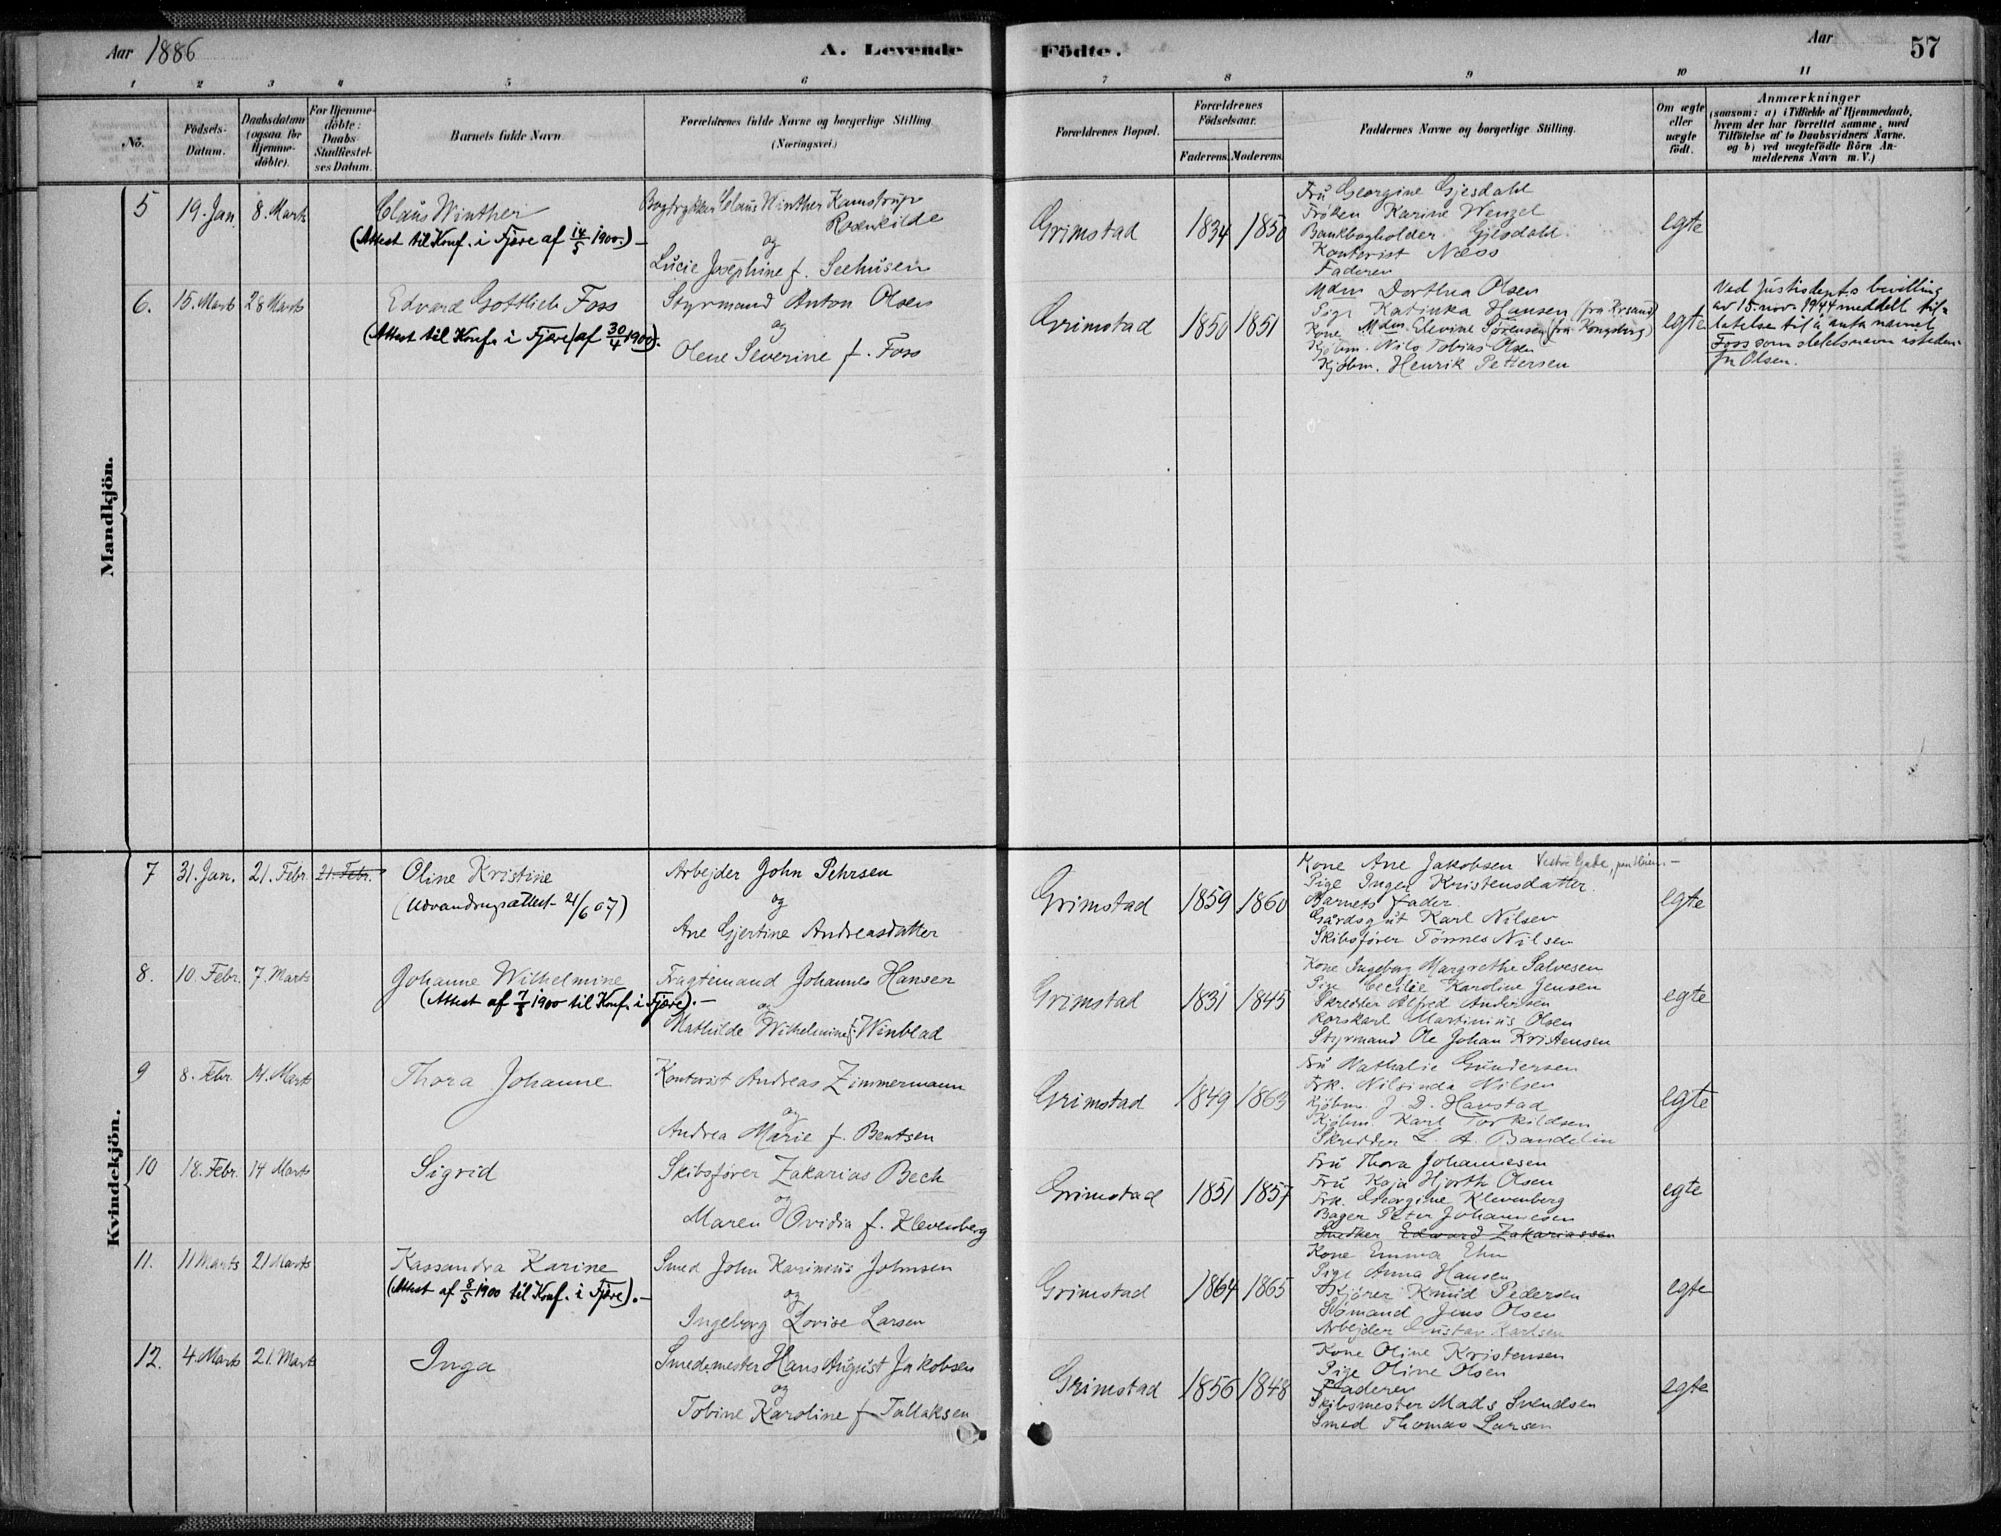 Aar 1886
A. Levende
Födte.
Aar
57
1 2 3 4 5 6 7 8 9 10 11
No.
Födsels-
Datum.
Daabsdatum
(ogsaa for
Hjemme-
döbte).
For Hjemme-
döbte:
Daabs-
Stadfæstel-
ses Datum.
Barnets fulde Navn.
Forældrenes fulde Navne og borgerlige Stilling
(Næringsvei.)
Forældrenes Bopæl.
Forældrenes
Födselsaar.
Faderens. Moderens.
Faddernes Navne og borgerlige Stilling.
Om ægte
eller
uægte
födt.
Anmærkninger
(saasom: a) i Tilfælde af Hjemmedaab,
hvem der har forrettet samme, med
Tilföielse af to Daabsvidners Navne.
og b) ved uægtefödte Börn An-
melderens Navn m. V.)
Mandkjön.
5
19. Jan
8. Marts
Claus Winther
(Attest til Konf. i Fjære af 14/5 1900.)
Bogtrykker Claus Winther Kamstrup
Rosenkilde
og
Lucie Josephine f. Seehusen
Grimstad
1834
1850
Fru Georgine Gjesdahl
Frøken Karine Wenzel
Bankbogholder Gjesdahl
Kontorist Næss
Faderen
egte
6.
15. Marts
28 Marts
Edvard Gottlieb Foss
(Attest til Konf. i Fjære af 30/4 1900).
Styrmand Anton Olsen
og
Olene Severine f. Foss
Grimstad
1850
1851
Mdm Dorthea Olsen
Pige Katinka Hansen (fra Krsand)
Kone Mdm. Elevine Sørensen (fra Kongsberg)
Kjøbm. Nils Tobias Olsen
Kjøbm. Henrik Pettersen
egte
Ved Justisdept.s bevilling
av 15. nov. 1944 meddelt til-
latelse til å anta navnet
Foss som slektsnavn isteden-
for Olsen.
Kvindekjön.
7
31. Jan.
21. Febr.
21. Febr.
Oline Kristine
(Udvandringsattest 21/6 07)
Arbejder John Pehrsen
og
Ane Gjertine Andreasdatter
Grimstad
1859
1860
Kone Ane Jakobsen Vestre Gade,
Pige Inger Kristensdatter.
Barnets Fader.
Gårdsgut Karl Nilsen
Skibsfører Tønnes Nilsen
egte
8.
10. Febr.
7. Marts
Johanne Wilhelmine
(Attest af 7/5 1900 til Konf. i Fjære).
Fragtemand Johannes Hansen
og
Mathilde Wilhelmine f. Winblad
Grimstad
1831
1845
Kone Ingeborg Margrethe Salvesen
Pige Cecilie Karoline Jensen
Skredder Alfred Andersen
Karl Martinius Olsen
Styrmand Ole Johan Kristensen
egte
9
8. Febr.
14. Marts
Thora Johanne
Kontorist Andreas Zimmermann
og
Andrea Marie f. Bentsen
Grimstad
1849
1863
Fru Nathalie Gundersen
Frk. Nilsinda Nilsen
Kjøbm. J. D. Havstad
Kjøbm. Karl Torkildsen
Skredder L. A. Bandelin
egte
10
18. Febr.
14 Marts
Sigrid
Skibsfører Zakarias Bech
og
Maren Ovidia f. Klevenberg
Grimstad
1851
1857
Fru Thora Johannesen
Fru Kaja Hjorth Olsen
Frk. Georgine Klevenberg
Bager Peter Johannesen
Snedker Edward Zakariassen
egte
11.
11 Marts
21 Marts
Kassandra Karine
(Attest af 8/5 1900 til Konf. i Fjære).
Smed John Karinius Johnsen
og
Ingeborg Lovise Larsen
Grimstad
1864
1865
Kone Emma Ehn
Pige Anna Hansen
Knud Pedersen
Sømand Jens Olsen
Arbejder Gustav Karlsen
egte
12.
4. Marts
21. Marts
Inga
Smedemester Hans August Jakobsen
og
Tobine Karoline f Tallaksen
Grimstad
1856
1848
Kone Oline Kristensen
Pige Oline Olsen
Faderen
Skibsmester Mads Svendsen
Smed Thomas Larsen
egte